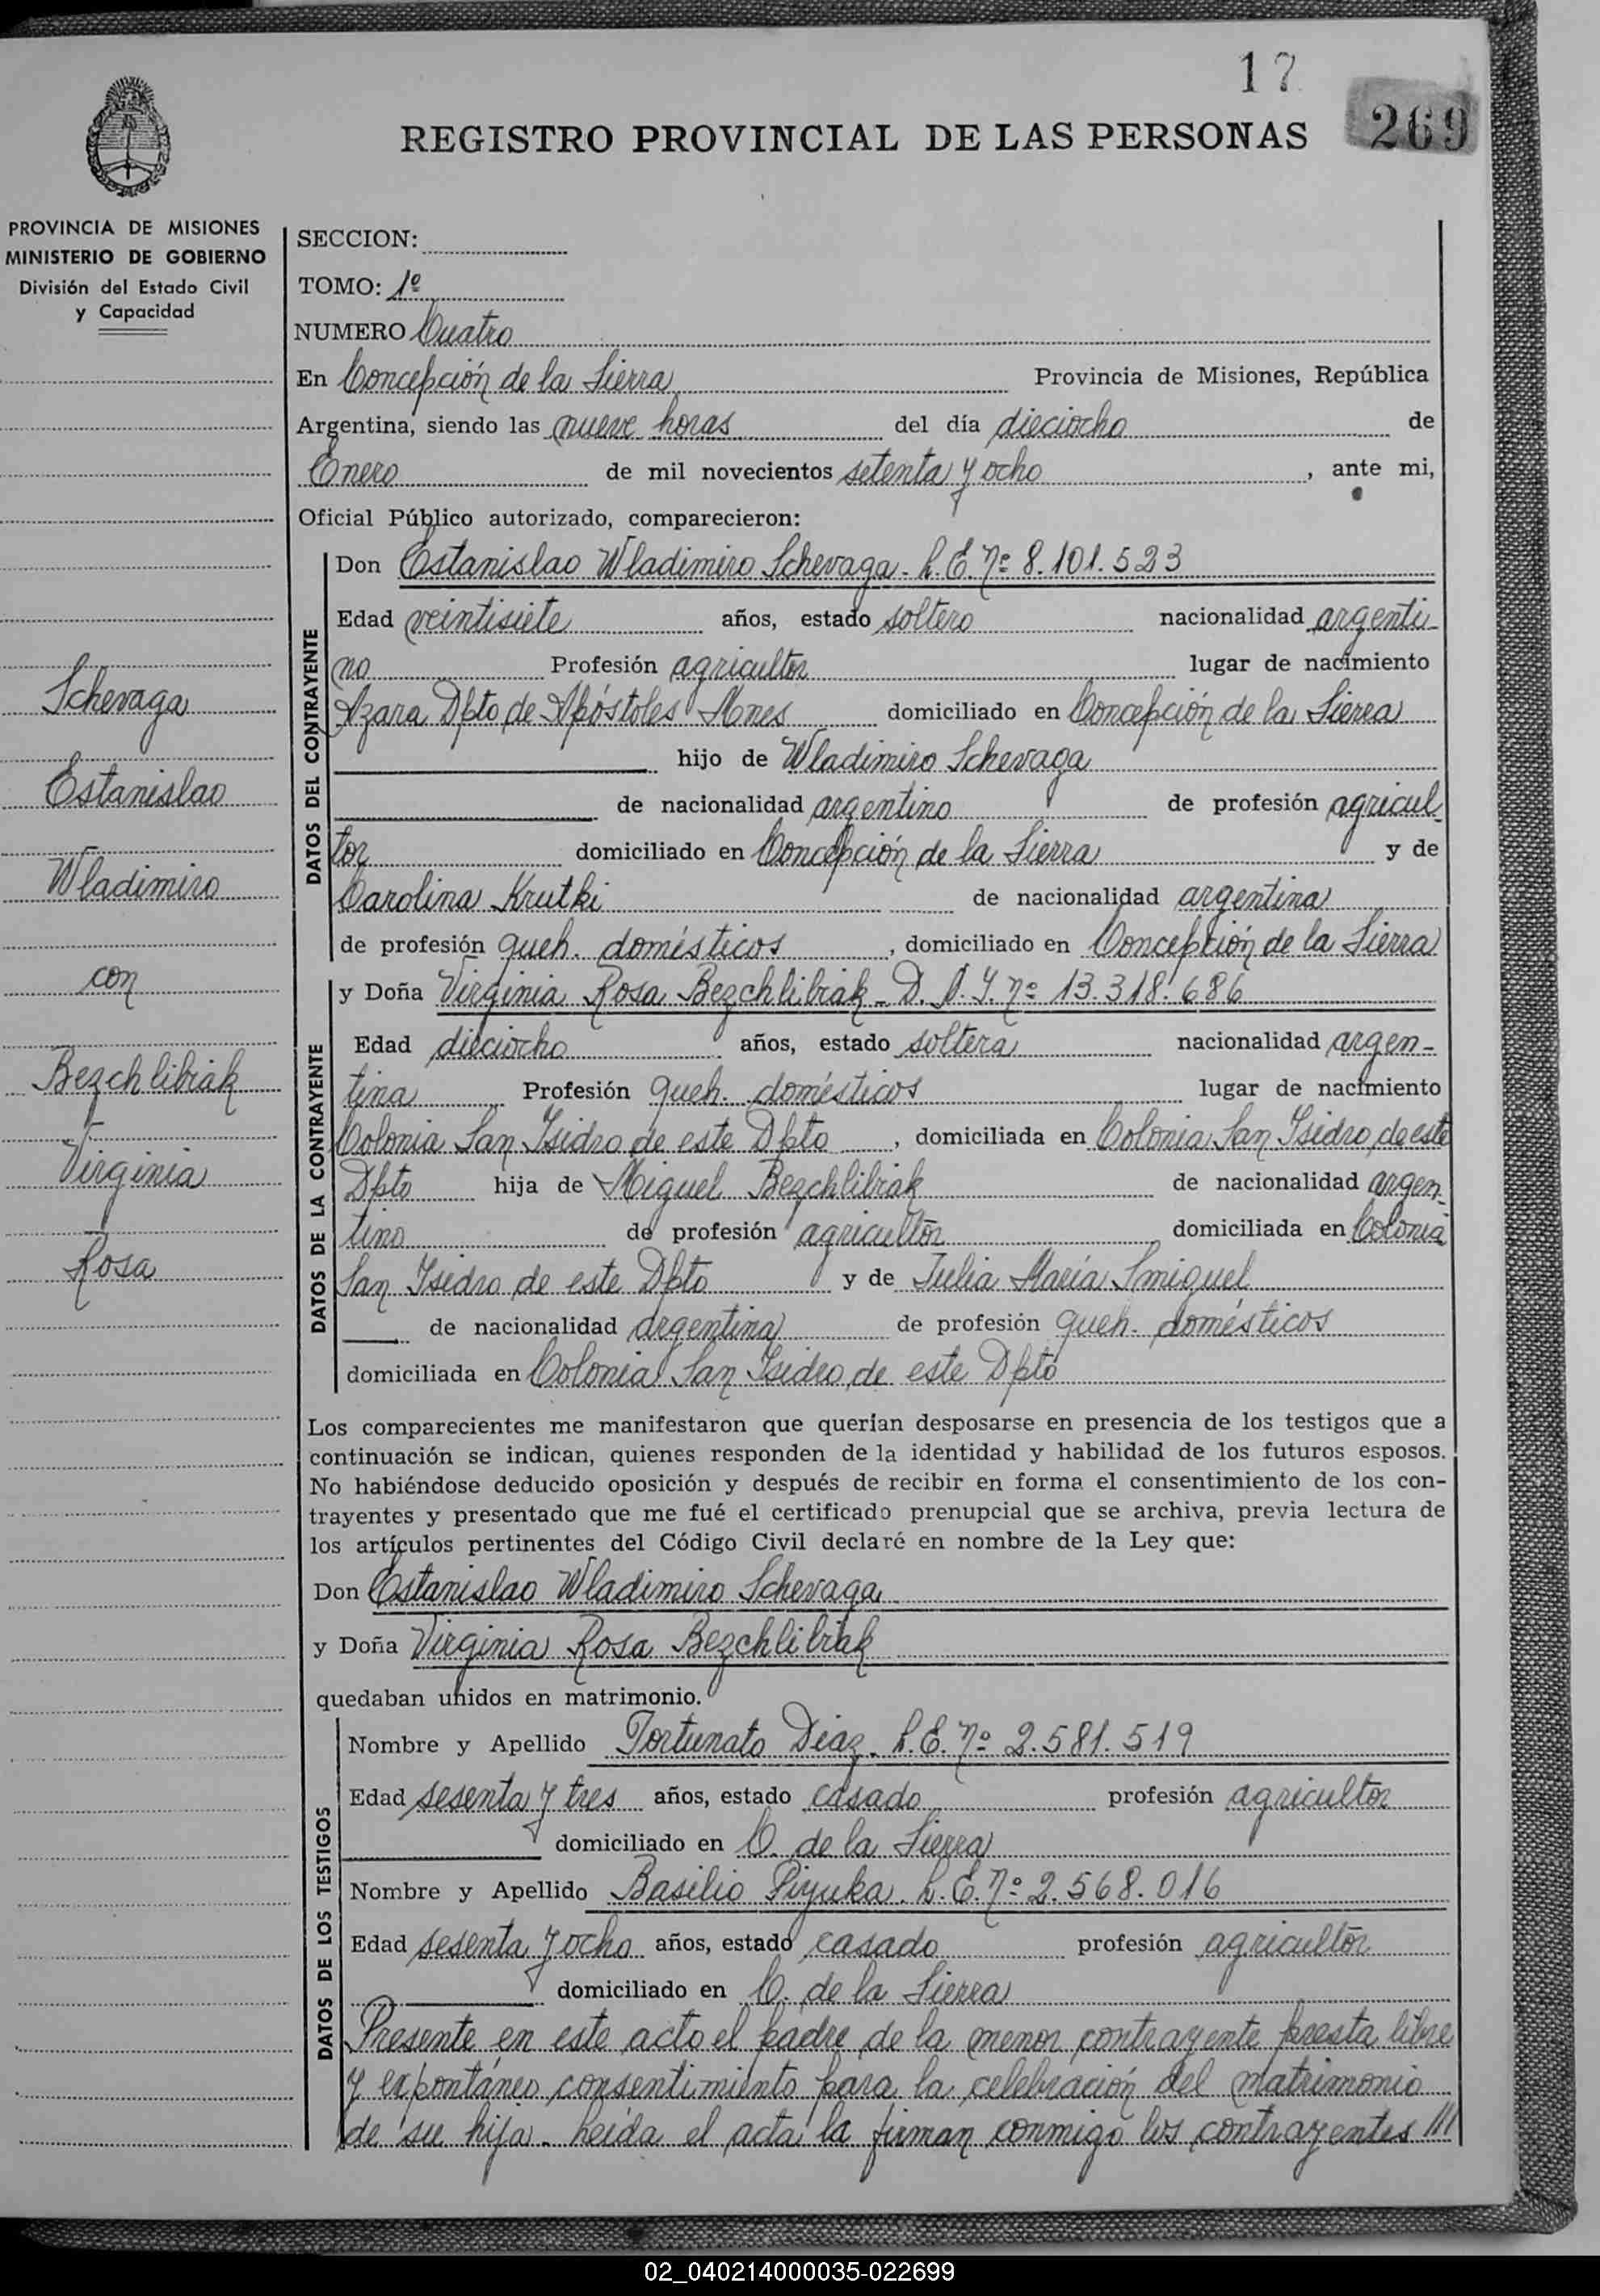 17
269
REGISTRO PROVINCIAL DE LAS PERSONAS
PROVINCIA DE MISIONES
MINISTERIO DE GOBIERNO
División del Estado Civil
y Capacidad
Schevaga
Estanislao
Wladimiro
con
Bezchlibiak
Virginia
Rosa
SECCION:
TOMO: 1º
NUMERO Cuatro
En Concepción de la Sierra Provincia de Misiones, República
Argentina, siendo las nueve horas del día dieciocho de
Enero de mil novecientos setenta y ocho, ante mi,
Oficial Público autorizado, comparecieron:
DATOS DEL CONTRAYENTE
Don Estanislao Wladimiro Schevaga - L.E. nº 8.101.523
Edad veintisiete años, estado soltero nacionalidad argenti-
no Profesión agricultor lugar de nacimiento
Azara Dpto de Apóstoles Mnes domiciliado en Concepción de la Sierra
hijo de Wladimiro Schevaga
de nacionalidad argentino de profesión agricul-
tor domiciliado en Concepción de la Sierra y de
Carolina Krutki de nacionalidad argentina
de profesión queh. domésticos, domiciliado en Concepción de la Sierra
DATOS DE LA CONTRAYENTE
y Doña Virginia Rosa Bezchlibiak - D.N.I. nº 13.318.686
Edad dieciocho años, estado soltera nacionalidad argen-
tina Profesión queh. domésticos lugar de nacimiento
Colonia San Isidro de este Dpto, domiciliada en Colonia San Isidro de este
Dpto hija de Miguel Bezchlibiak de nacionalidad argen-
tino de profesión agricultor domiciliada en Colonia
San Isidro de este Dpto y de Julia María Smiguel
de nacionalidad argentina de profesión queh. domésticos
domiciliada en Colonia San Isidro de este Dpto
Los comparecientes me manifestaron que querían desposarse en presencia de los testigos que a
continuación se indican, quienes responden de la identidad y habilidad de los futuros esposos.
No habiéndose deducido oposición y después de recibir en forma el consentimiento de los con-
trayentes y presentado que me fué el certificado prenupcial que se archiva, previa lectura de
los artículos pertinentes del Código Civil declaré en nombre de la Ley que:
Don Estanislao Wladimiro Schevaga
y Doña Virginia Rosa Bezchlibiak
quedaban unidos en matrimonio.
DATOS DE LOS TESTIGOS
Nombre y Apellido Fortunato Diaz. L.E. nº 2.581.519
Edad sesenta y tres años, estado casado profesión agricultor
domiciliado en C. de la Sierra
Nombre y Apellido Basilio Piyuka. L.E. nº 2.568.016
Edad sesenta y ocho años, estado casado profesión agricultor
domiciliado en C. de la Sierra
Presente en este acto el padre de la menor contrayente presta libre
y expontáneo consentimiento para la celebración del matrimonio
de su hija. Leída el acta la firman conmigo los contrayentes ///
02_040214000035-022699